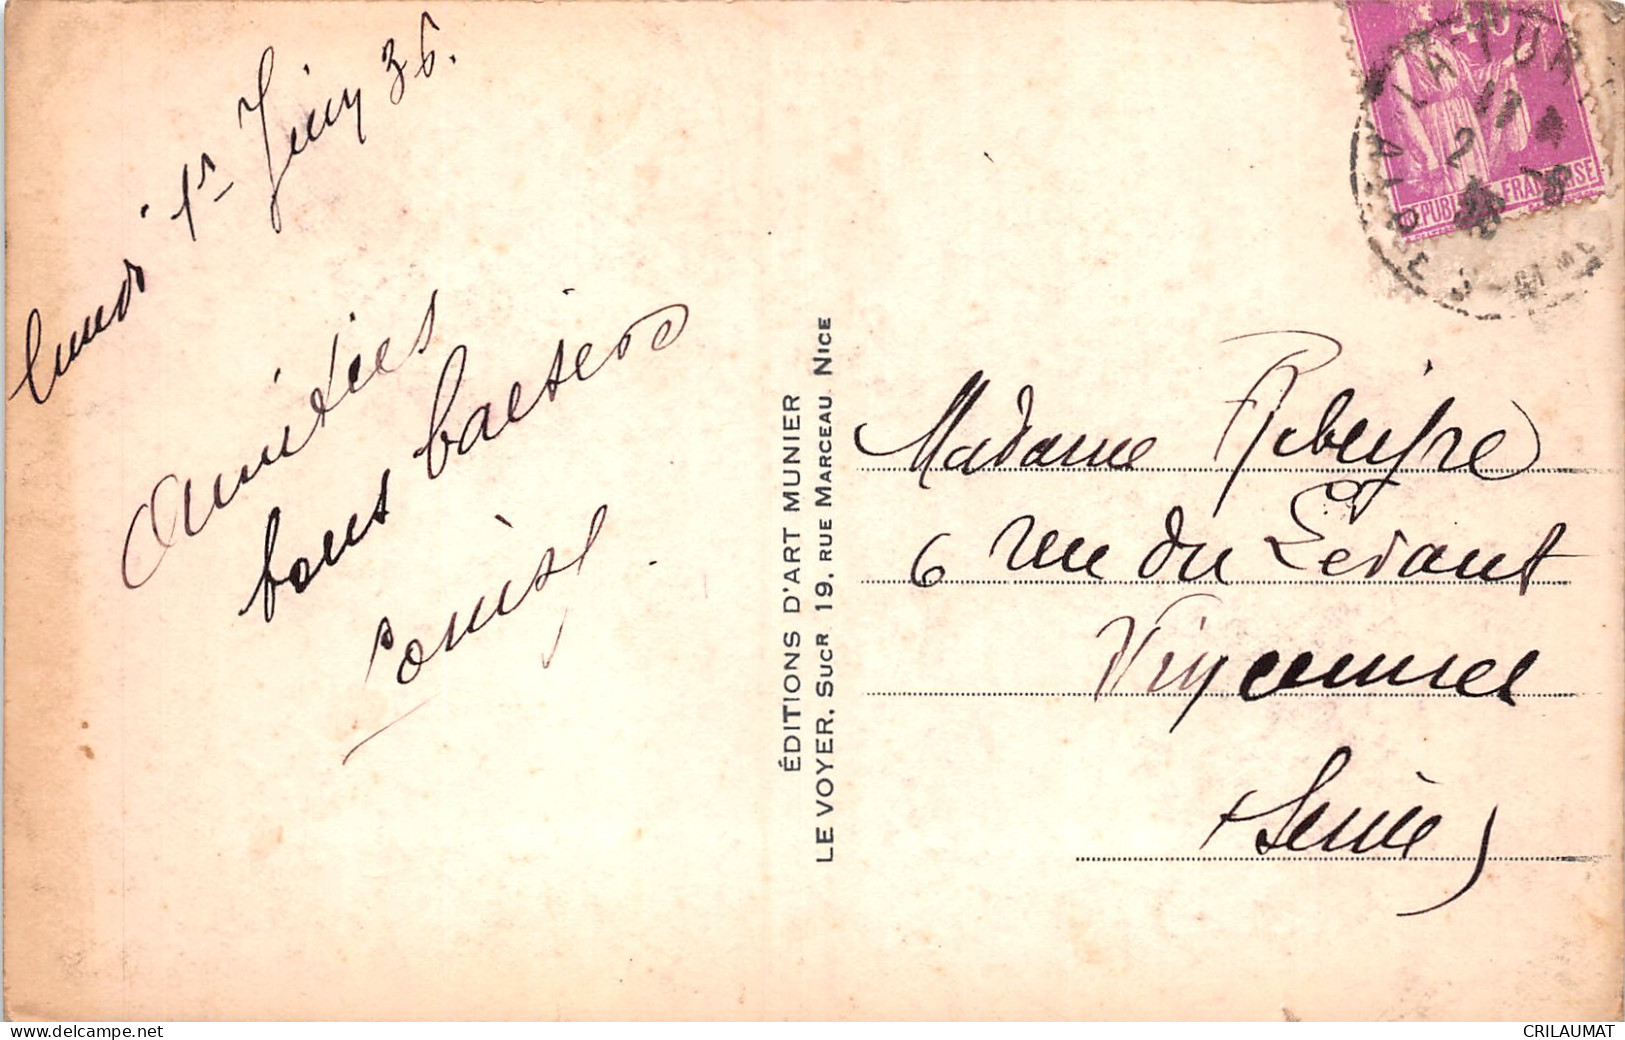 lundi 1er Juin 36.
Amitiées
bons baisers
Louise
ÉDITIONS D'ART MUNIER
LE VOYER, SUCR 19, RUE MARCEAU, NICE
40
LA TUR
17
2
36
RÉPUBLIQUE FRANÇAISE
Madame Ribeyre
6 rue du Levant
Vincennes
(Seine)
https://www.delcampe.net
CRILAUMAT